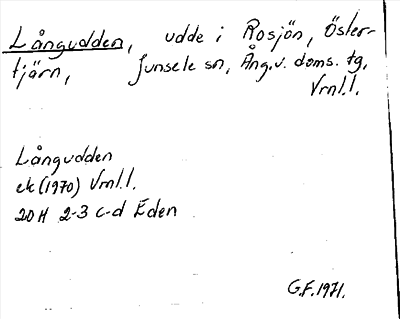 Långudden, udde i Rosjön, Öster-
tjärn, Junsele sn, Ång.v. doms. tg,
Vrnl.l.
Långudden
ek (1970) Vrnl.l.
20H 2-3 c-d Eden
G.F. 1971.